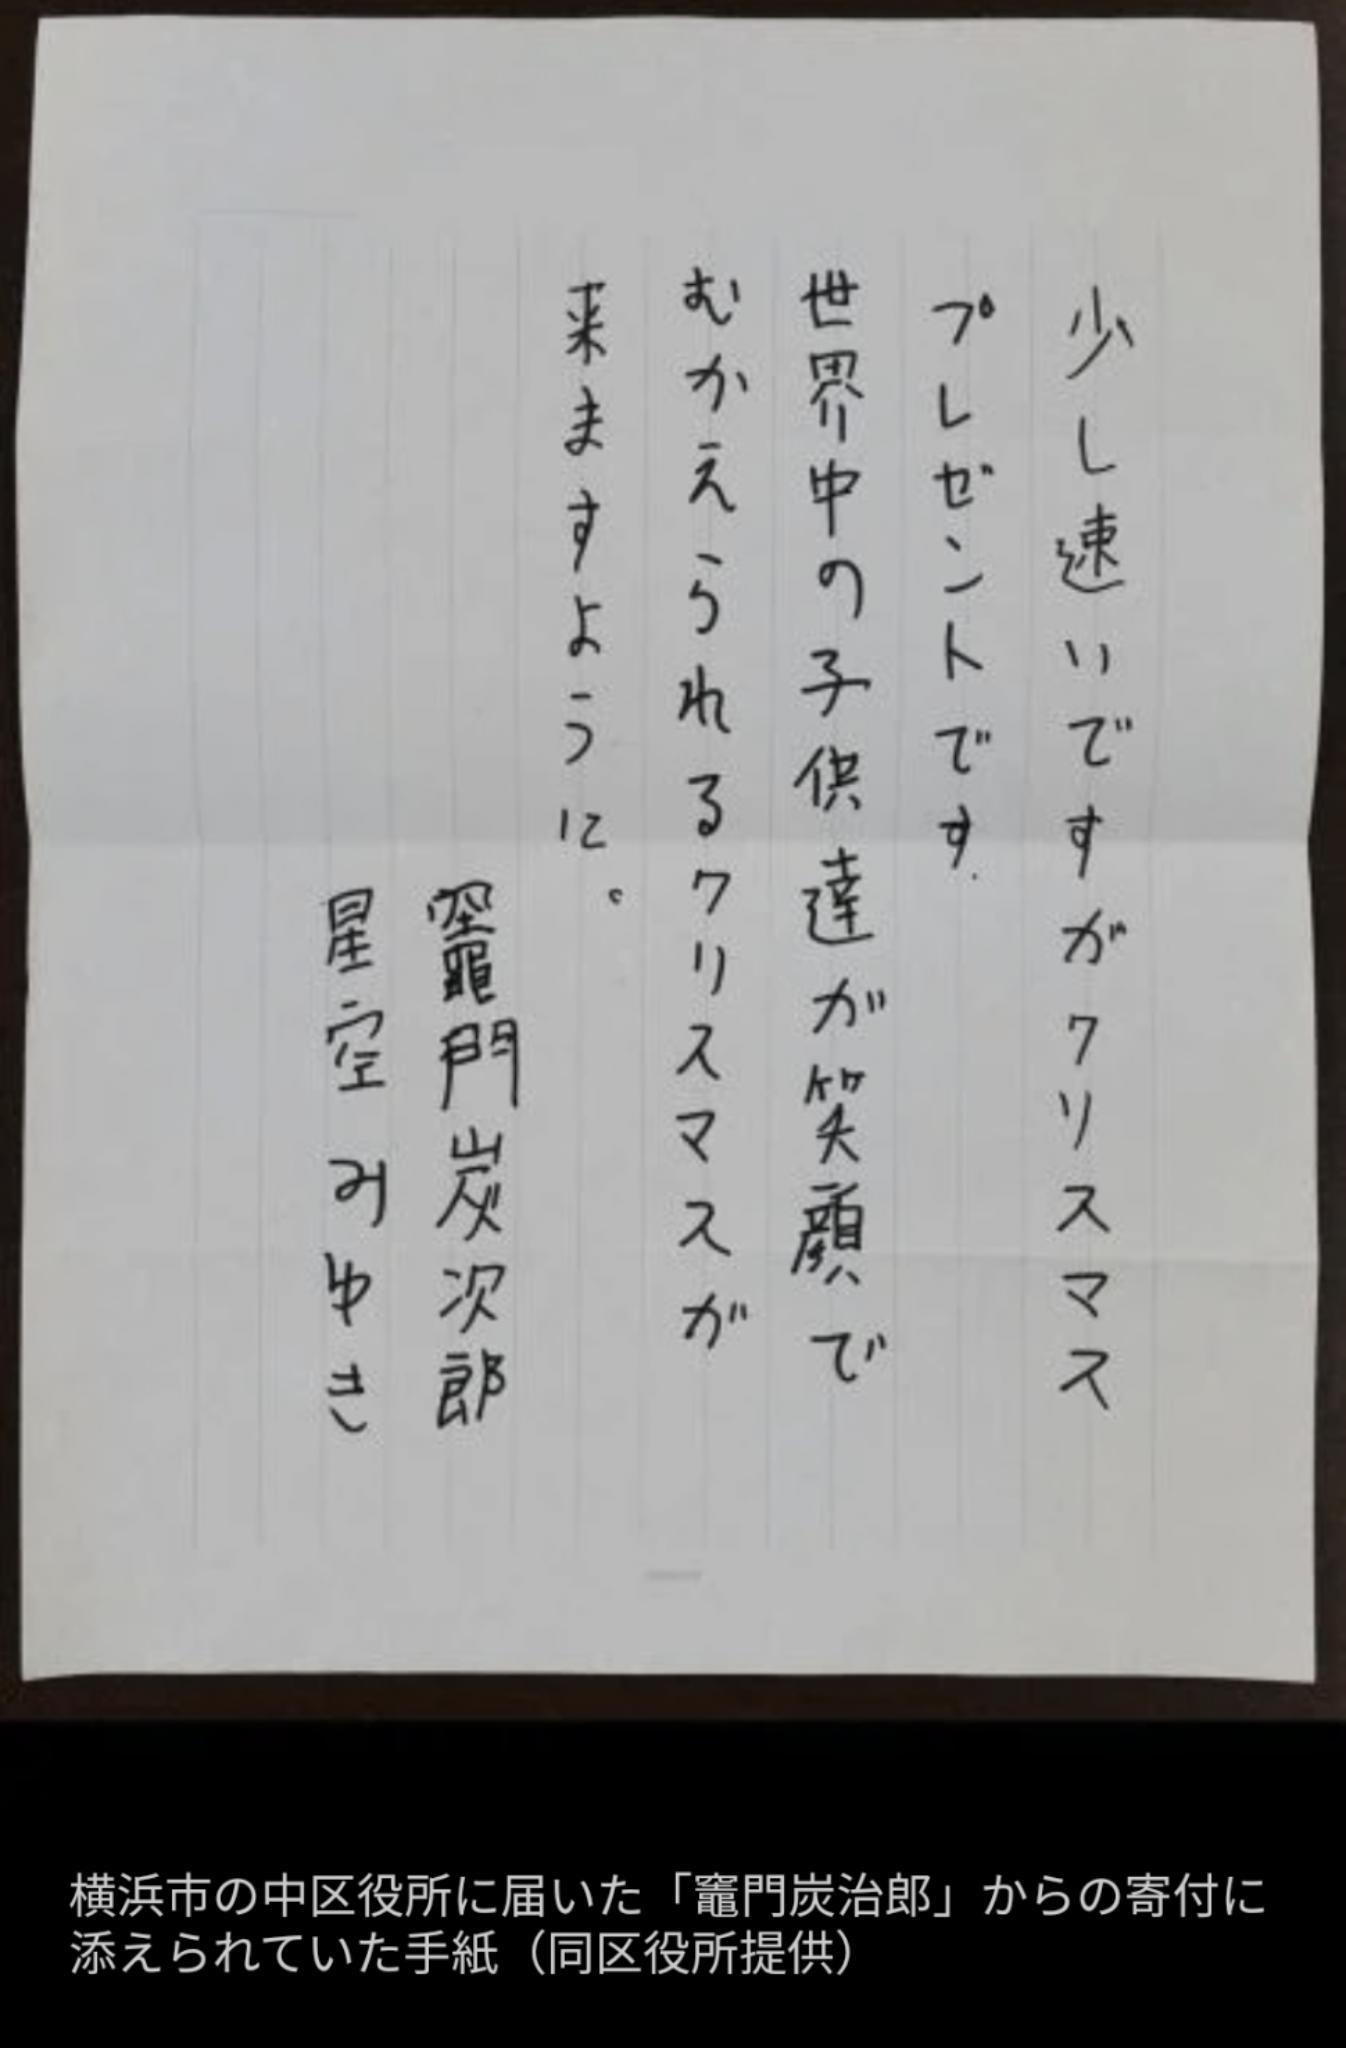 少し速いですがクリスマス
プレゼントです.
世界中の子供達が笑顔で
むかえられるクリスマスが
来ますように。
竈門炭次郎
星空みゆき
横浜市の中区役所に届いた「竈門炭治郎」からの寄付に
添えられていた手紙（同区役所提供）